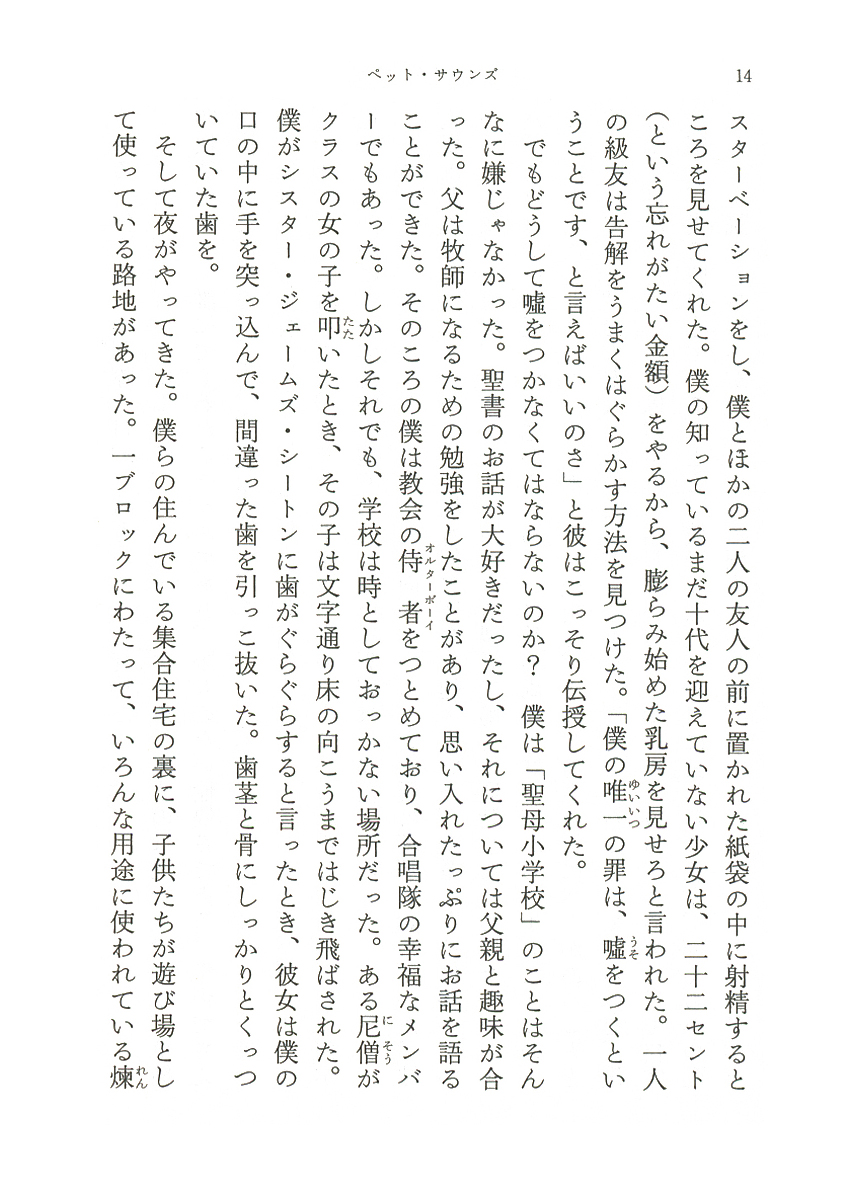 ペット・サウンズ
14
スターベーションをし、僕とほかの二人の友人の前に置かれた紙袋の中に射精すると
ころを見せてくれた。僕の知っているまだ十代を迎えていない少女は、二十二セント
(という忘れがたい金額)をやるから、膨らみ始めた乳房を見せろと言われた。一人
の級友は告解をうまくはぐらかす方法を見つけた。「僕の唯一の罪は、嘘をつくとい
うことです、と言えばいいのさ」と彼はこっそり伝授してくれた。
でもどうして嘘をつかなくてはならないのか? 僕は「聖母小学校」のことはそん
なに嫌じゃなかった。聖書のお話が大好きだったし、それについては父親と趣味が合
った。父は牧師になるための勉強をしたことがあり、思い入れたっぷりにお話を語る
ことができた。そのころの僕は教会の侍者をつとめており、合唱隊の幸福なメンバ
ーでもあった。しかしそれでも、学校は時としておっかない場所だった。ある尼僧が
クラスの女の子を叩いたとき、その子は文字通り床の向こうまではじき飛ばされた。
僕がシスター・ジェームズ・シートンに歯がぐらぐらすると言ったとき、彼女は僕の
口の中に手を突っ込んで、間違った歯を引っこ抜いた。歯茎と骨にしっかりとくっつ
いていた歯を。
そして夜がやってきた。僕らの住んでいる集合住宅の裏に、子供たちが遊び場とし
て使っている路地があった。一ブロックにわたって、いろんな用途に使われている煉